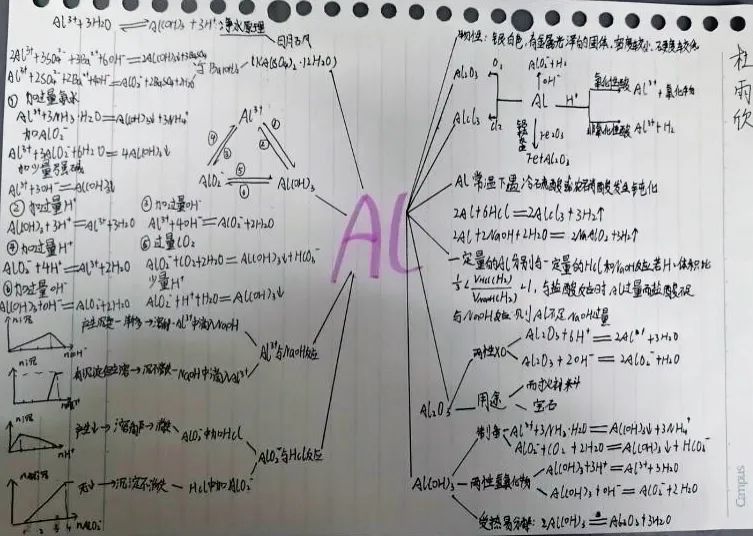 Al³⁺+3H₂O ⇌ Al(OH)₃+3H⁺ 净水原理
明矾
2Al³⁺+3SO₄²⁻+3Ba²⁺+6OH⁻=2Al(OH)₃↓+3BaSO₄
Al³⁺+2SO₄²⁻+2Ba²⁺+4OH⁻=AlO₂⁻+2BaSO₄+2H₂O
与Ba(OH)₂
(KAl(SO₄)₂·12H₂O)
① 加过量氨水
Al³⁺+3NH₃·H₂O=Al(OH)₃↓+3NH₄⁺
加AlO₂⁻
Al³⁺+3AlO₂⁻+6H₂O=4Al(OH)₃↓
加少量强碱
Al³⁺+3OH⁻=Al(OH)₃↓
② 加过量H⁺
Al(OH)₃+3H⁺=Al³⁺+3H₂O
④ 加过量H⁺
AlO₂⁻+4H⁺=Al³⁺+2H₂O
⑥ 加过量OH⁻
Al(OH)₃+OH⁻=AlO₂⁻+2H₂O
③ 加过量OH⁻
Al³⁺+4OH⁻=AlO₂⁻+2H₂O
⑤ 过量CO₂
AlO₂⁻+CO₂+2H₂O=Al(OH)₃↓+HCO₃⁻
少量H⁺
AlO₂⁻+H⁺+H₂O=Al(OH)₃↓
Al³⁺
④ ③ ① ②
AlO₂⁻ ⑤ ⑥ Al(OH)₃
Al
n沉
nOH⁻
溶解-Al³⁺中滴入NaOH
n沉
nAl³⁺
NaOH中滴入Al³⁺
Al³⁺与NaOH反应
n沉
nH⁺
产生↓→溶解→消失
AlO₂⁻中加HCl
nAlO₂⁻
无↓→沉淀不消失-HCl中加AlO₂⁻
AlO₂⁻与HCl反应
物性:银白色,有金属光泽的固体,密度较小,硬度较小
Al₂O₃ O₂ AlO₂⁻+H₂ OH⁻
Al H⁺
氧化性酸 Al³⁺+氧化产物
非氧化性酸 Al³⁺+H₂
AlCl₃ Cl₂
铝热 Fe₂O₃
Fe+Al₂O₃
杜雨欣
Al常温下遇冷浓硫酸或浓硝酸发生钝化
2Al+6HCl=2AlCl₃+3H₂↑
2Al+2NaOH+2H₂O=2NaAlO₂+3H₂↑
一定量的Al分别与一定量的HCl和NaOH反应,若H₂体积比
1/3<V_HCl(H₂)/V_NaOH(H₂)<1,与盐酸反应时Al过量而盐酸不足
与NaOH反应则Al不足NaOH过量
Al₂O₃
两性XO
Al₂O₃+6H⁺=2Al³⁺+3H₂O
Al₂O₃+2OH⁻=2AlO₂⁻+H₂O
用途
耐火材料
宝石
Al(OH)₃
制备-Al³⁺+3NH₃·H₂O=Al(OH)₃↓+3NH₄⁺
AlO₂⁻+CO₂+2H₂O=Al(OH)₃↓+HCO₃⁻
两性氢氧化物
Al(OH)₃+3H⁺=Al³⁺+3H₂O
Al(OH)₃+OH⁻=AlO₂⁻+2H₂O
受热易分解:2Al(OH)₃=Al₂O₃+3H₂O
Campus